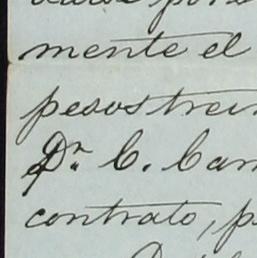 mente el
pesos trein
Dn. C. Cam
contrato, p